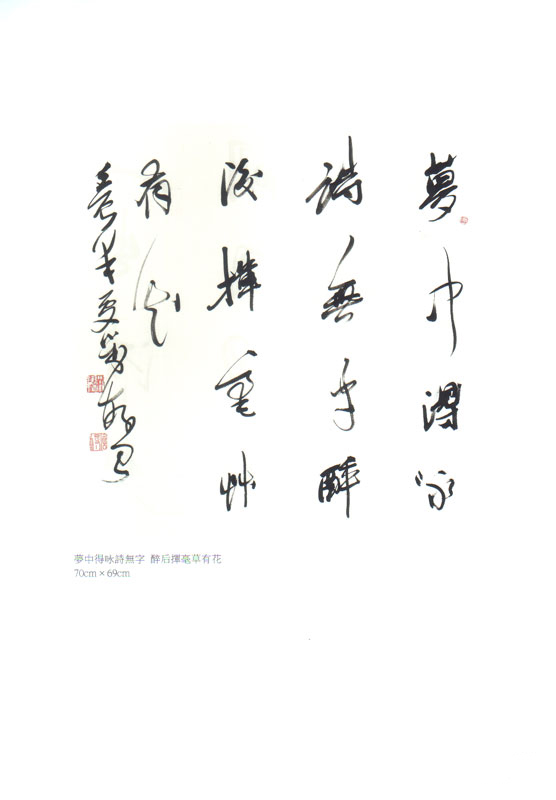 夢中得咏
詩無字醉
後揮毫艸
有花
夢中得咏詩無字 醉后揮毫草有花
70cm × 69cm